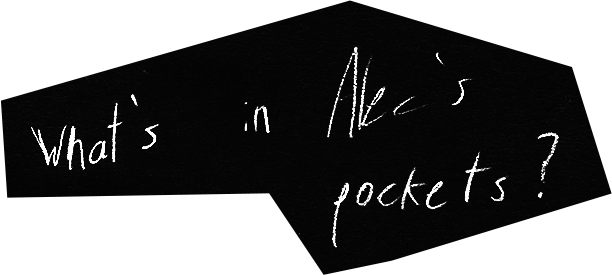 What's in Alec's
pockets?